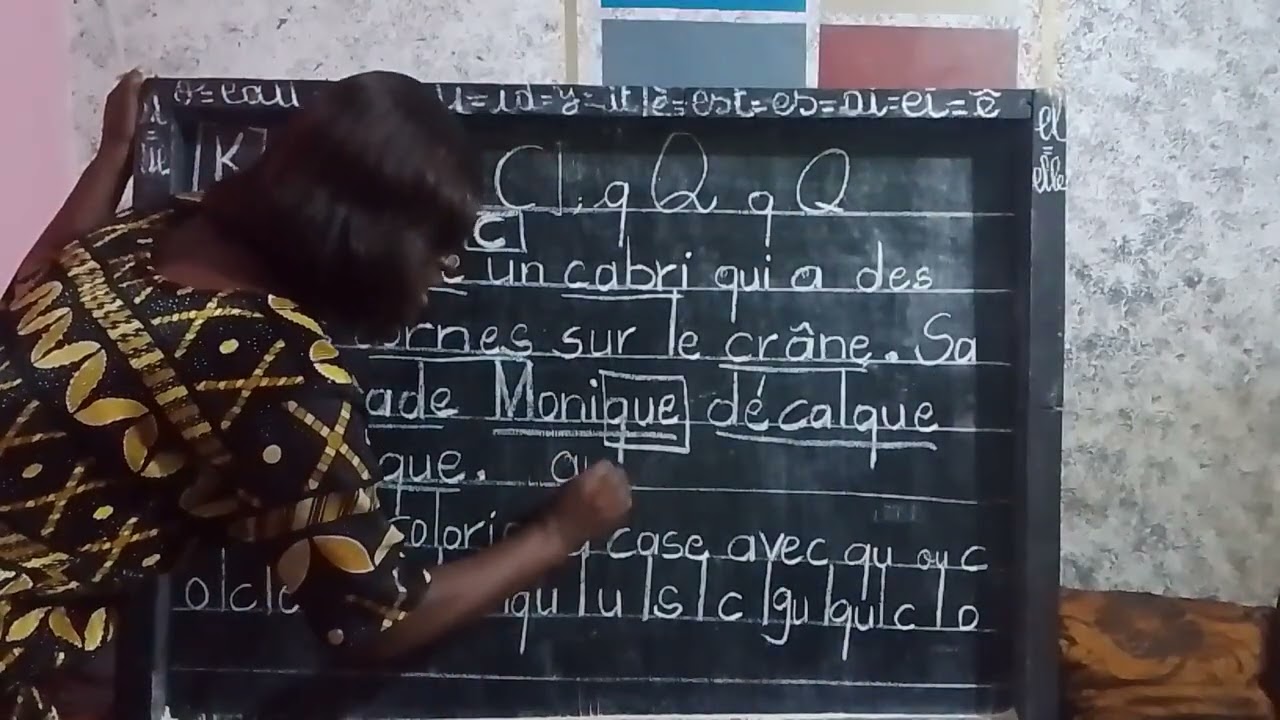 o = eau = id = y = it è = est = es = ai = ei = ê
el
=
elle
K C q Q q Q
C
un cabri qui a des
cornes sur le crâne. Sa
ade Monique décalque
que.
colorie case avec qu ou c
o c u s c gu qu c o